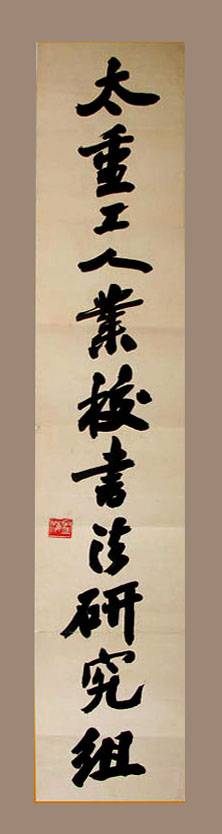 太重工人業校書法研究组